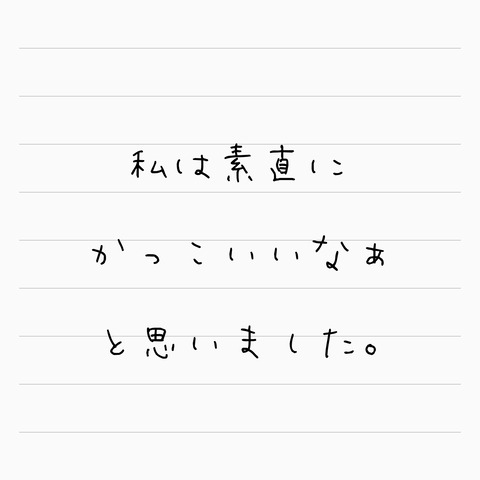 私は素直に
かっこいいなぁ
と思いました。